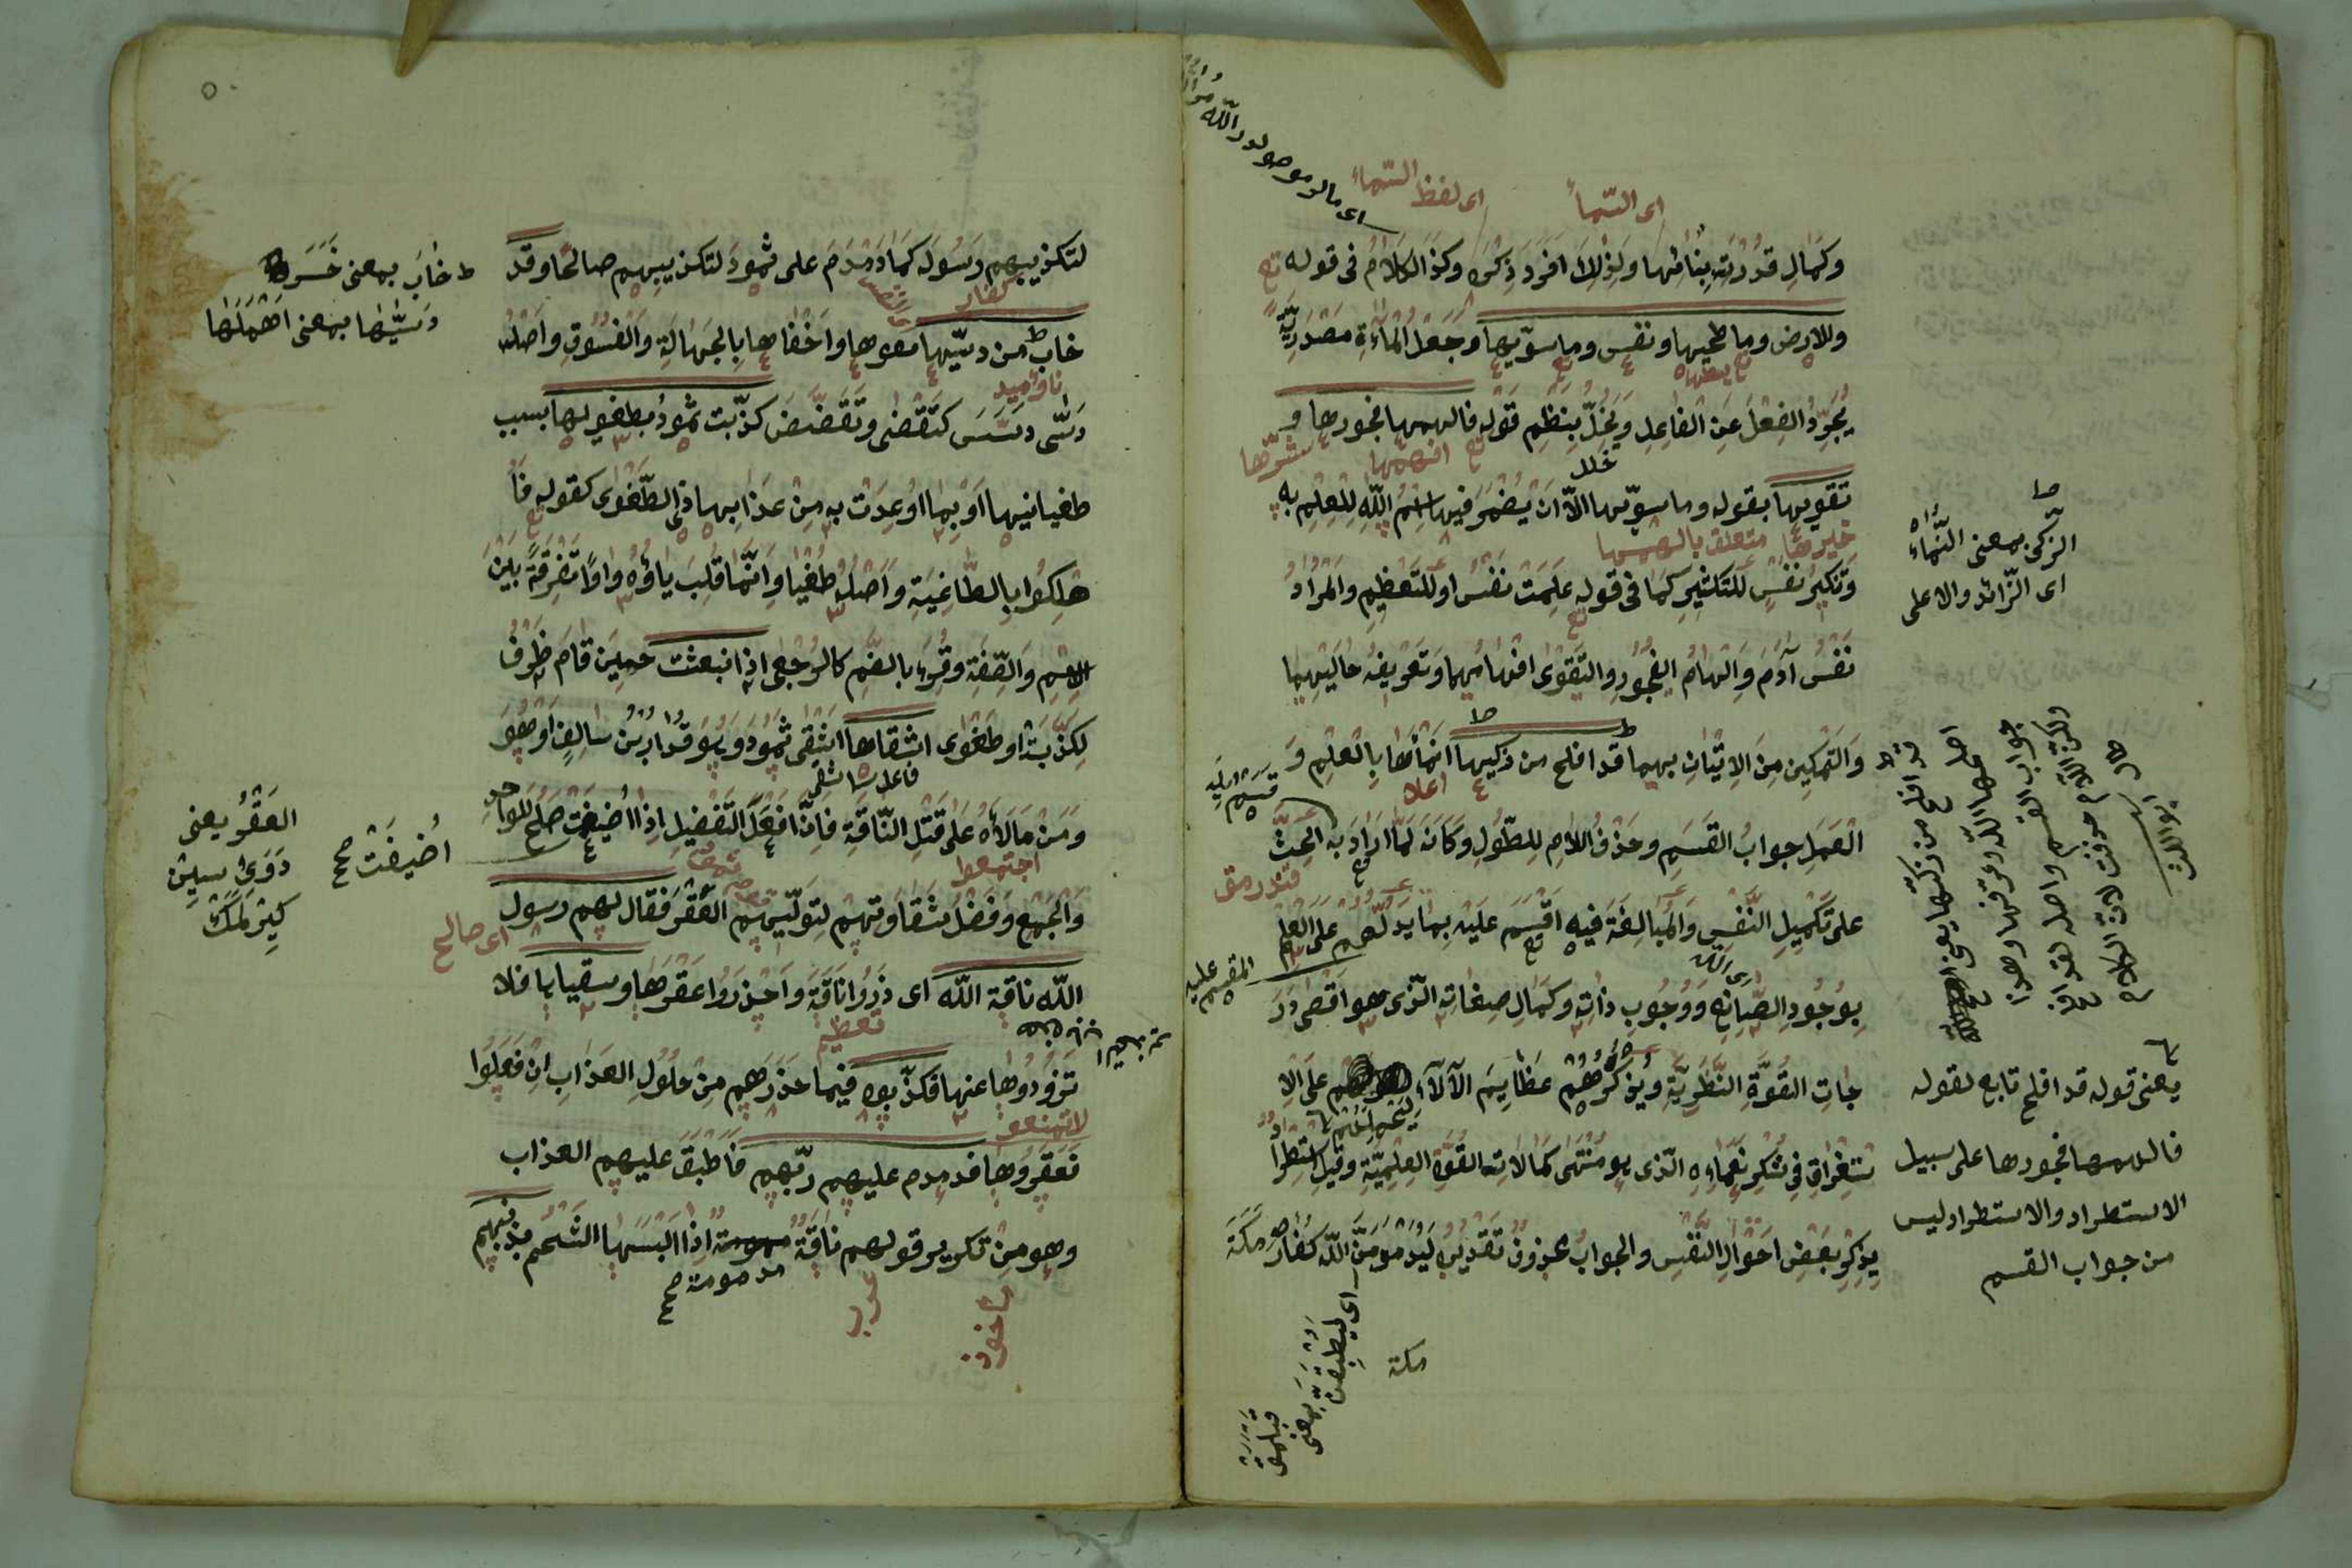 وكمال قدرته بنائها ولذلك افرد ذكره وكذا الكلام في قوله
والارض وما طحيها ونفس وما سويها وجعل الماءة مصدرية
يجرد الفعل عن الفاعل ويخل بنظم قوله فالهمها فجورها و
تقويها بقوله وما سويها الا ان يضمر فيها اسم الله للعلم به
وتنكير نفس للتكثير كما في قوله علمت نفس او للتعظيم والمراد
نفس آدم والهام الفجور والتقوى افهامهما وتعريف حاليهما
والتمكين من الاتيان بهما قد افلح من زكيها انماها بالعلم و
العمل جواب القسم وحذف اللام للطول وكانه لما اراد به الحث
على تكميل النفس والمبالغة فيه اقسم عليه بما يدلهم على العلم
بوجود الصانع ووجوب ذاته وكمال صفاته الذي هو اقصى در
جات القوة النظرية ويذكرهم عظايم الآلاء على الا
ستغراق في شكر نعماءه الذي هو منتهى كمالات القوة العلمية وقيل استطرا
يذكر بعض احوال النفس والجواب محذوف تقديره ليدمدمن الله كفار مكة
اى السماء
اى لفظ السماء
خلل
افهمها
متعلق بالهمها
اعلا
اى الله
الزكى بمعنى النماء
اى الزائد والاعلى
قد افلح من زكيها يعنى
اصلحها الله وعرفها وهذا
جواب القسم واصله لقد افلح
ولكن اللام حذفت لان الكلام
طال ابو الليث
يعنى قوله قد افلح تابع لقوله
فالهمها فجورها على سبيل
الاستطراد والاستطراد ليس
من جواب القسم
المقسم عليه
اى ليطبقن
بمعنى
مكة
لتكذيبهم رسوله كما دمدم على ثمود لتكذيبهم صالحا وقد
خاب من دسيها نقصها واخفاها بالجهالة والفسوق واصله
دسى دسس كتقضى وتقضض كذبت ثمود بطغويها بسبب
طغيانيها او بما اوعدت به من عذابها ذى الطغوى كقوله فا
هلكوا بالطاغية واصله طغيا وانما قلب ياؤه واوا تفرقة بين
الاسم والصفة وقرء بالضم كالرجعى اذا انبعث حين قام ظرف
لكذبت او طغوى اشقاها اشقى ثمود وهو قدار بن سالف او هو
ومن مالأه على قتل الناقة فان افعل التفضيل اذا اضيفت صلح للواحد
والجمع وفضل شقاوتهم لتوليهم العقر فقال لهم رسول
الله ناقة الله اى ذروا ناقة واحذروا عقرها وسقيايا فلا
تزودوها عنها فكذبوه فيما حذرهم من حلول العذاب ان فعلوا
فعقروها فدمدم عليهم ربهم فاطبق عليهم العذاب
وهو من تكرير قولهم ناقة مدمومة اذا البسها الشحم بذنبهم
كفار
فاعل
اجتمعوا
اى صالح
مدمومة صح
عرب
مأخوذ
خاب بمعنى خسر
دسيها بمعنى اهملها
اضيفت صح
العقر يعنى